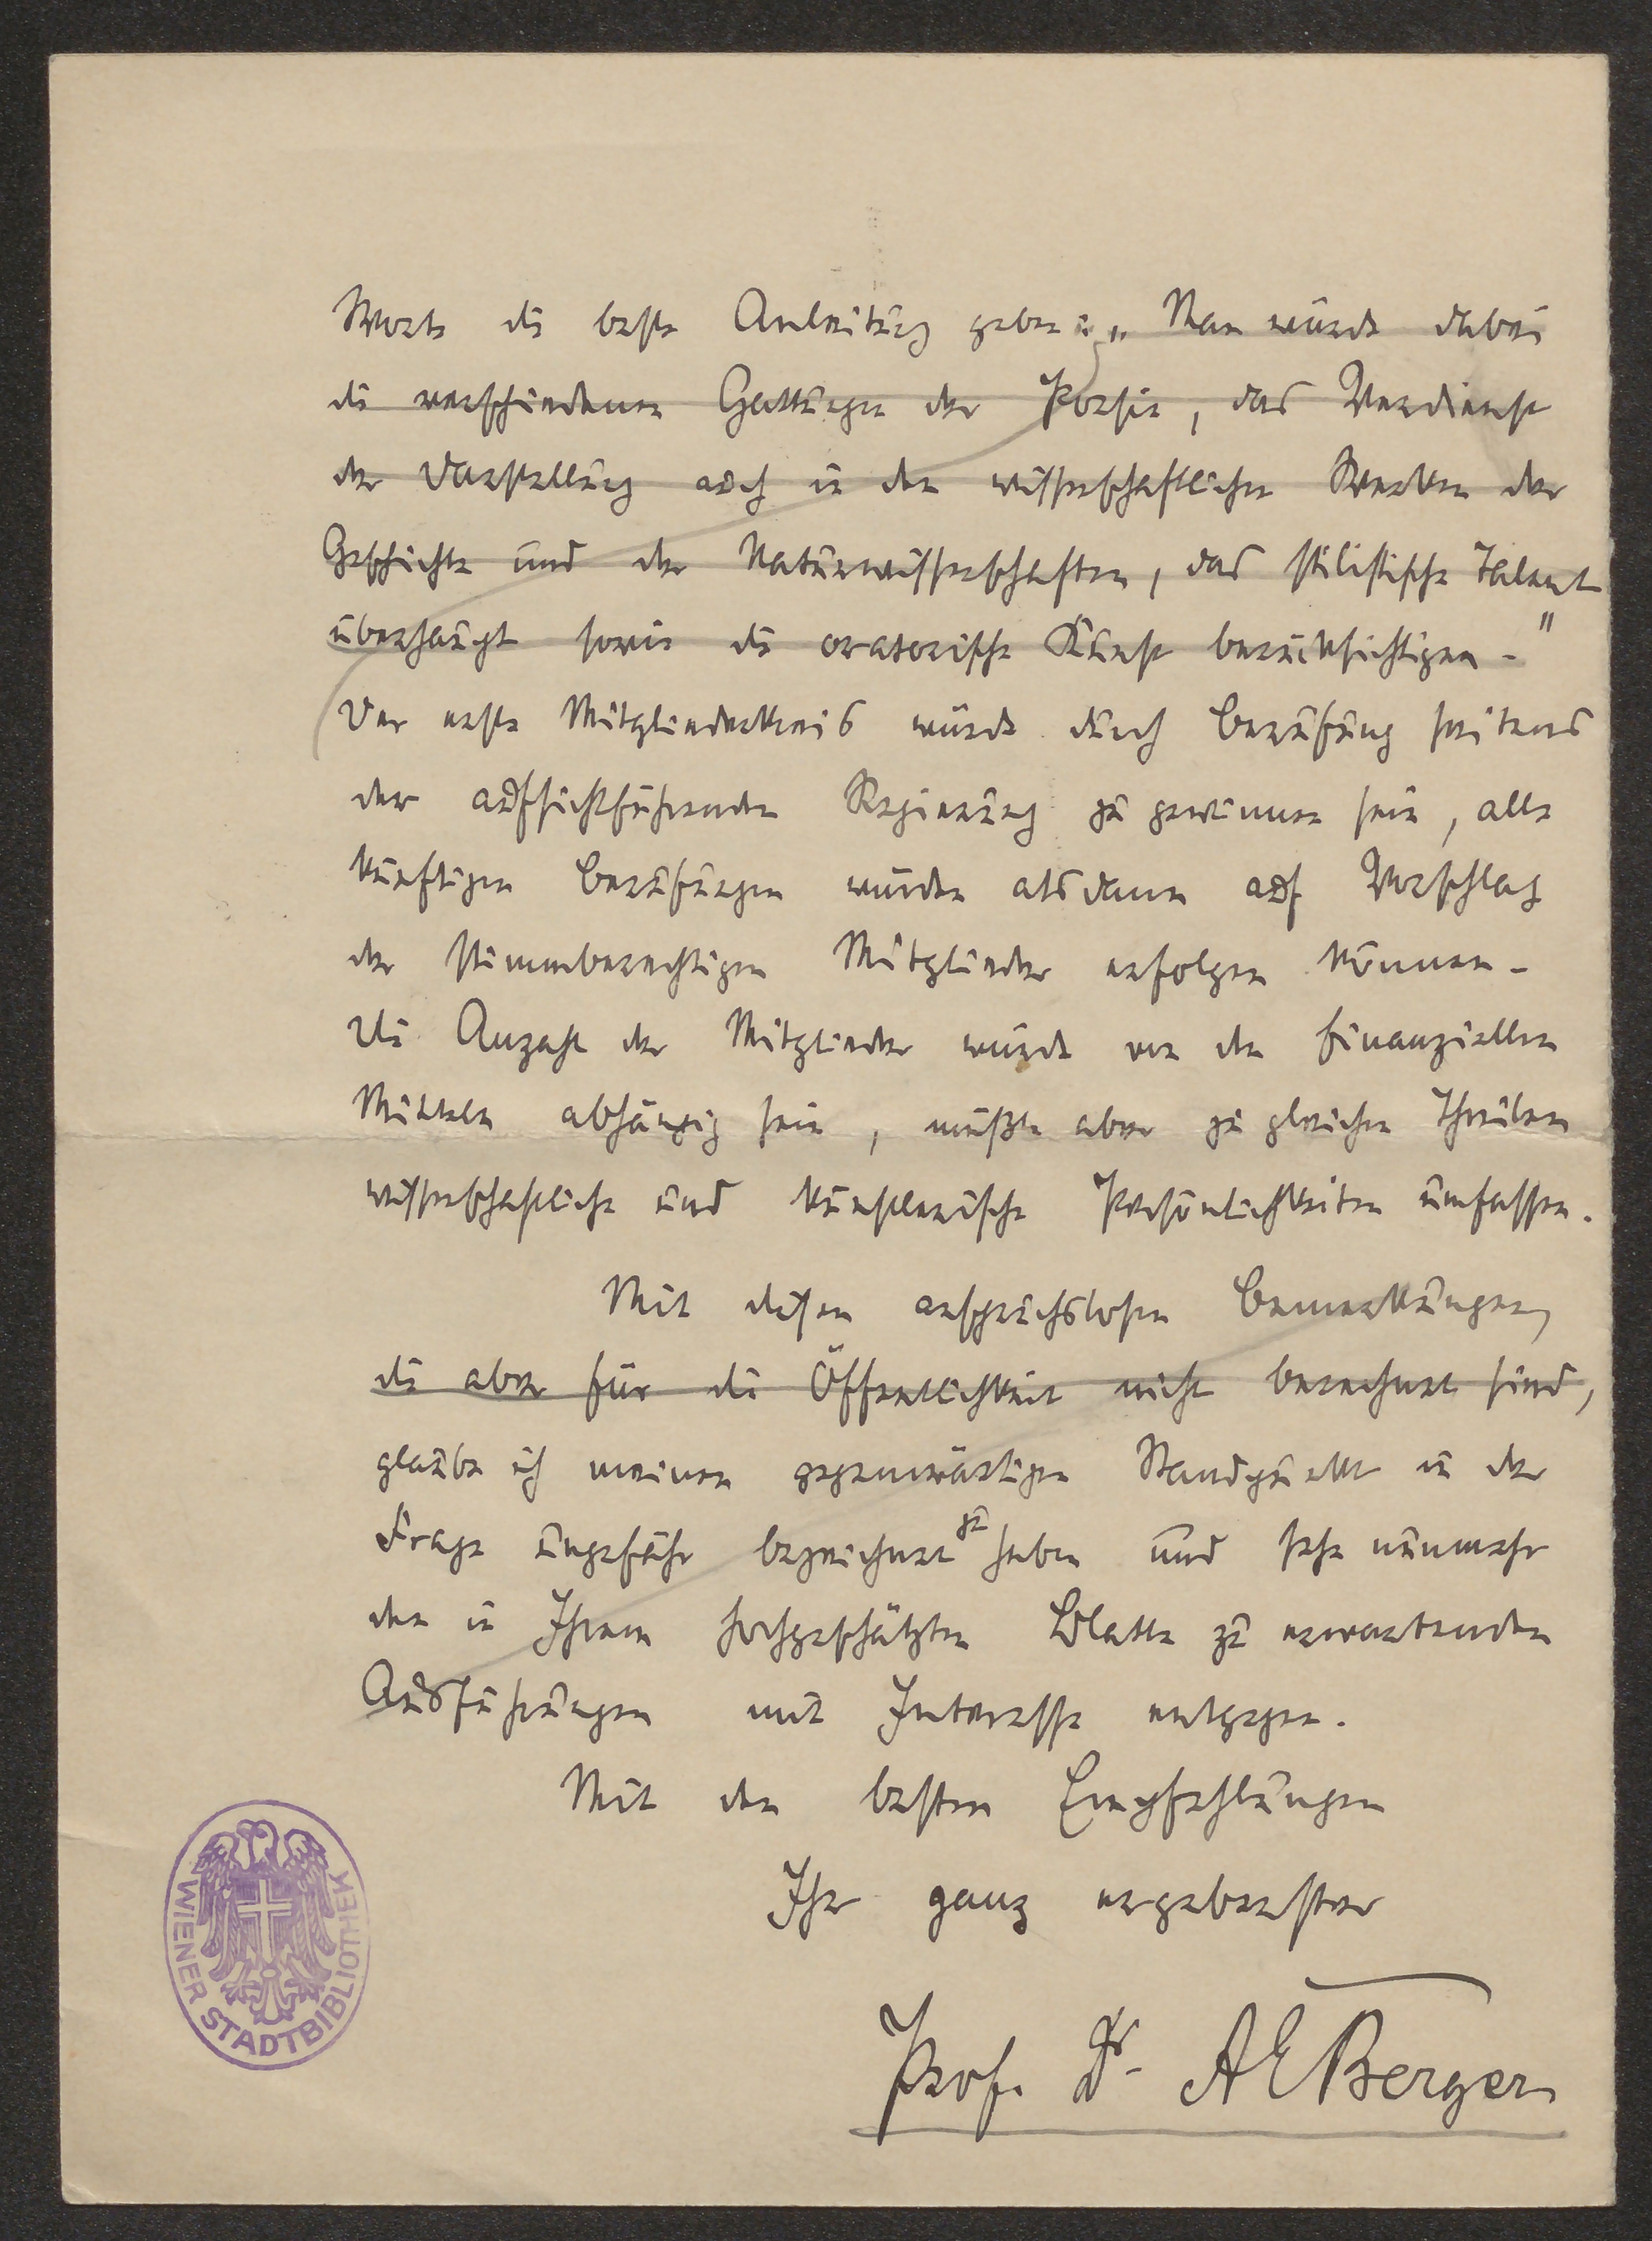 Worte die beste Anleitung geben: „Man würde dabei
die verschiedenen Gattungen der Poesie, das Verdienst
der Darstellung auch in den wissenschaftlichen Werken der
Geschichte und der Naturwissenschaften, das stilistische Talent
überhaupt sowie die oratorische Kunst berücksichtigen."
Der erste Mitgliederkreis würde durch Berufung seitens
der aufsichtführenden Regierung zu gewinnen sein, alle
künftigen Berufungen würden alsdann auf Vorschlag
der stimmberechtigten Mitglieder erfolgen können.
Die Anzahl der Mitglieder würde von den finanziellen
Mitteln abhängig sein, müßte aber zu gleichen Theilen
wissenschaftliche und künstlerische Persönlichkeiten umfassen.
Mit diesen anspruchslosen Bemerkungen,
die aber für die Öffentlichkeit nicht berechnet sind,
glaube ich meinen gegenwärtigen Standpunkt in der
Frage ungefähr bezeichnet zu haben und sehe nunmehr
den in Ihrem hochgeschätzten Blatte zu erwartenden
Ausführungen mit Interesse entgegen.
Mit den besten Empfehlungen
Ihr ganz ergebenster
Prof. Dr. AEBerger
WIENER STADTBIBLIOTHEK